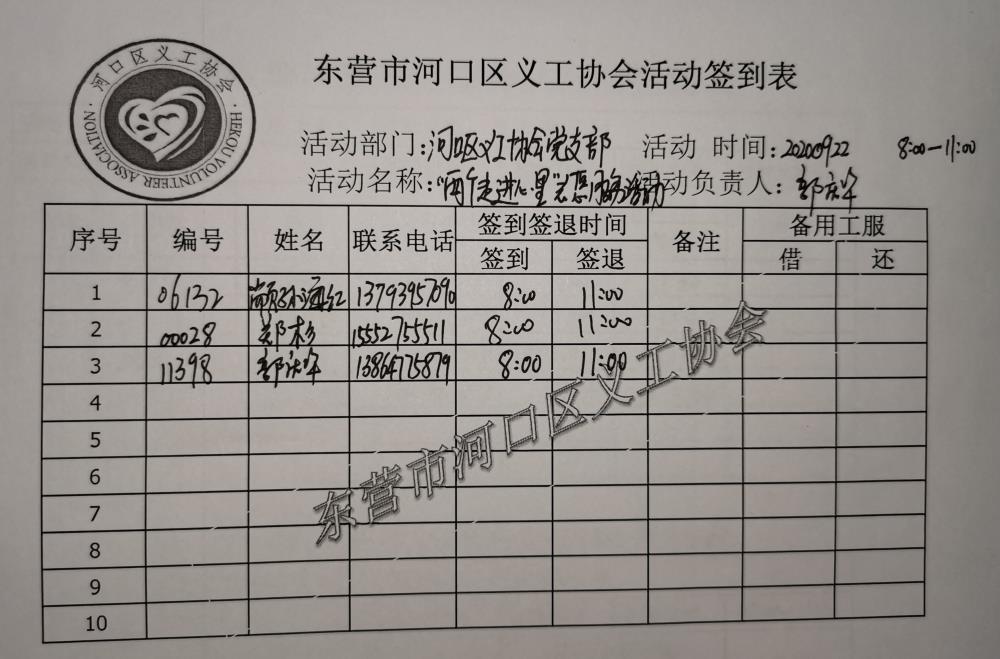 河口区义工协会
HEKOU VOLUNTEER ASSOCIATION
东营市河口区义工协会活动签到表
活动部门：河口区义工协会党支部 活动 时间：20200922 8:00—11:00
活动名称："两个走进 活动负责人：
序号 编号 姓名 联系电话 签到签退时间 备注 备用工服
签到 签退 借 还
1 06132 13793957090 8:00 11:00
2 00028 郑杉 15552755511 8:00 11:00
3 11398 13864775879 8:00 11:00
4
5
6
7
8
9
10
东营市河口区义工协会